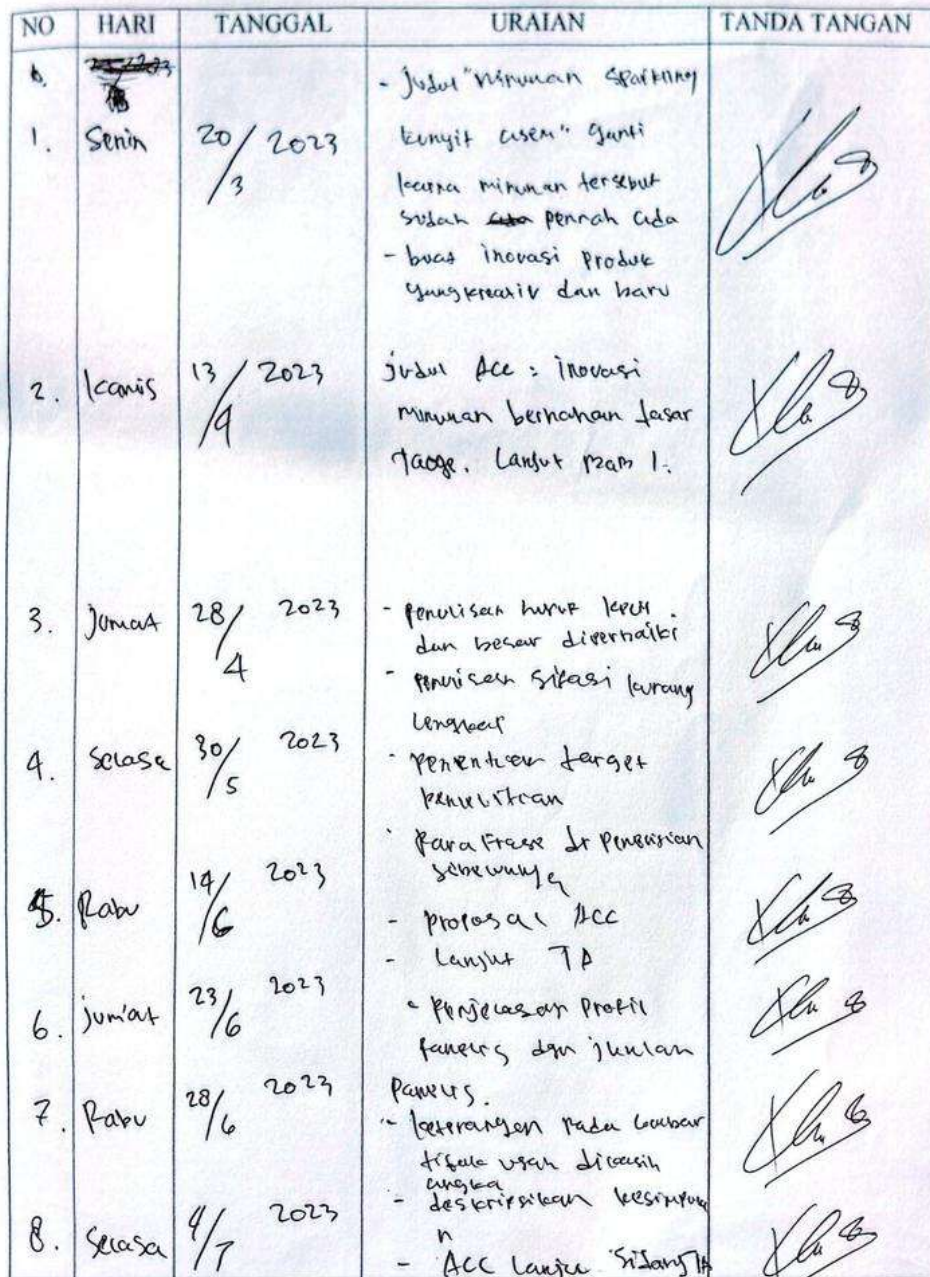 NO HARI TANGGAL URAIAN TANDA TANGAN
- Judul "minuman sparkling
1. Senin 20/3 2023 kunyit asem" ganti
karna minuman tersebut
sudah pernah ada
- buat inovasi produk
yang kreatif dan baru
2. Kamis 13/4 2023 judul Acc : inovasi
minuman berbahan dasar
Taoge. Lanjut BAB 1.
3. Jumat 28/4 2023 - penulisan huruf kecil
dan besar diperbaiki
- penulisan sitasi kurang
lengkap
4. Selasa 30/5 2023 - penentuan target
penelitian
- parafrase dr penelitian
sebelumnya
5. Rabu 14/6 2023 - proposal ACC
- Lanjut TA
6. jum'at 23/6 2023 - Penjelasan Profil
panelis dan jumlah
panelis.
7. Rabu 28/6 2023 - keterangan pada Gambar
tidak usah dikasih
angka
- deskripsikan kesimpula
n
8. Selasa 4/7 2023 - ACC Lanju Sidang TA